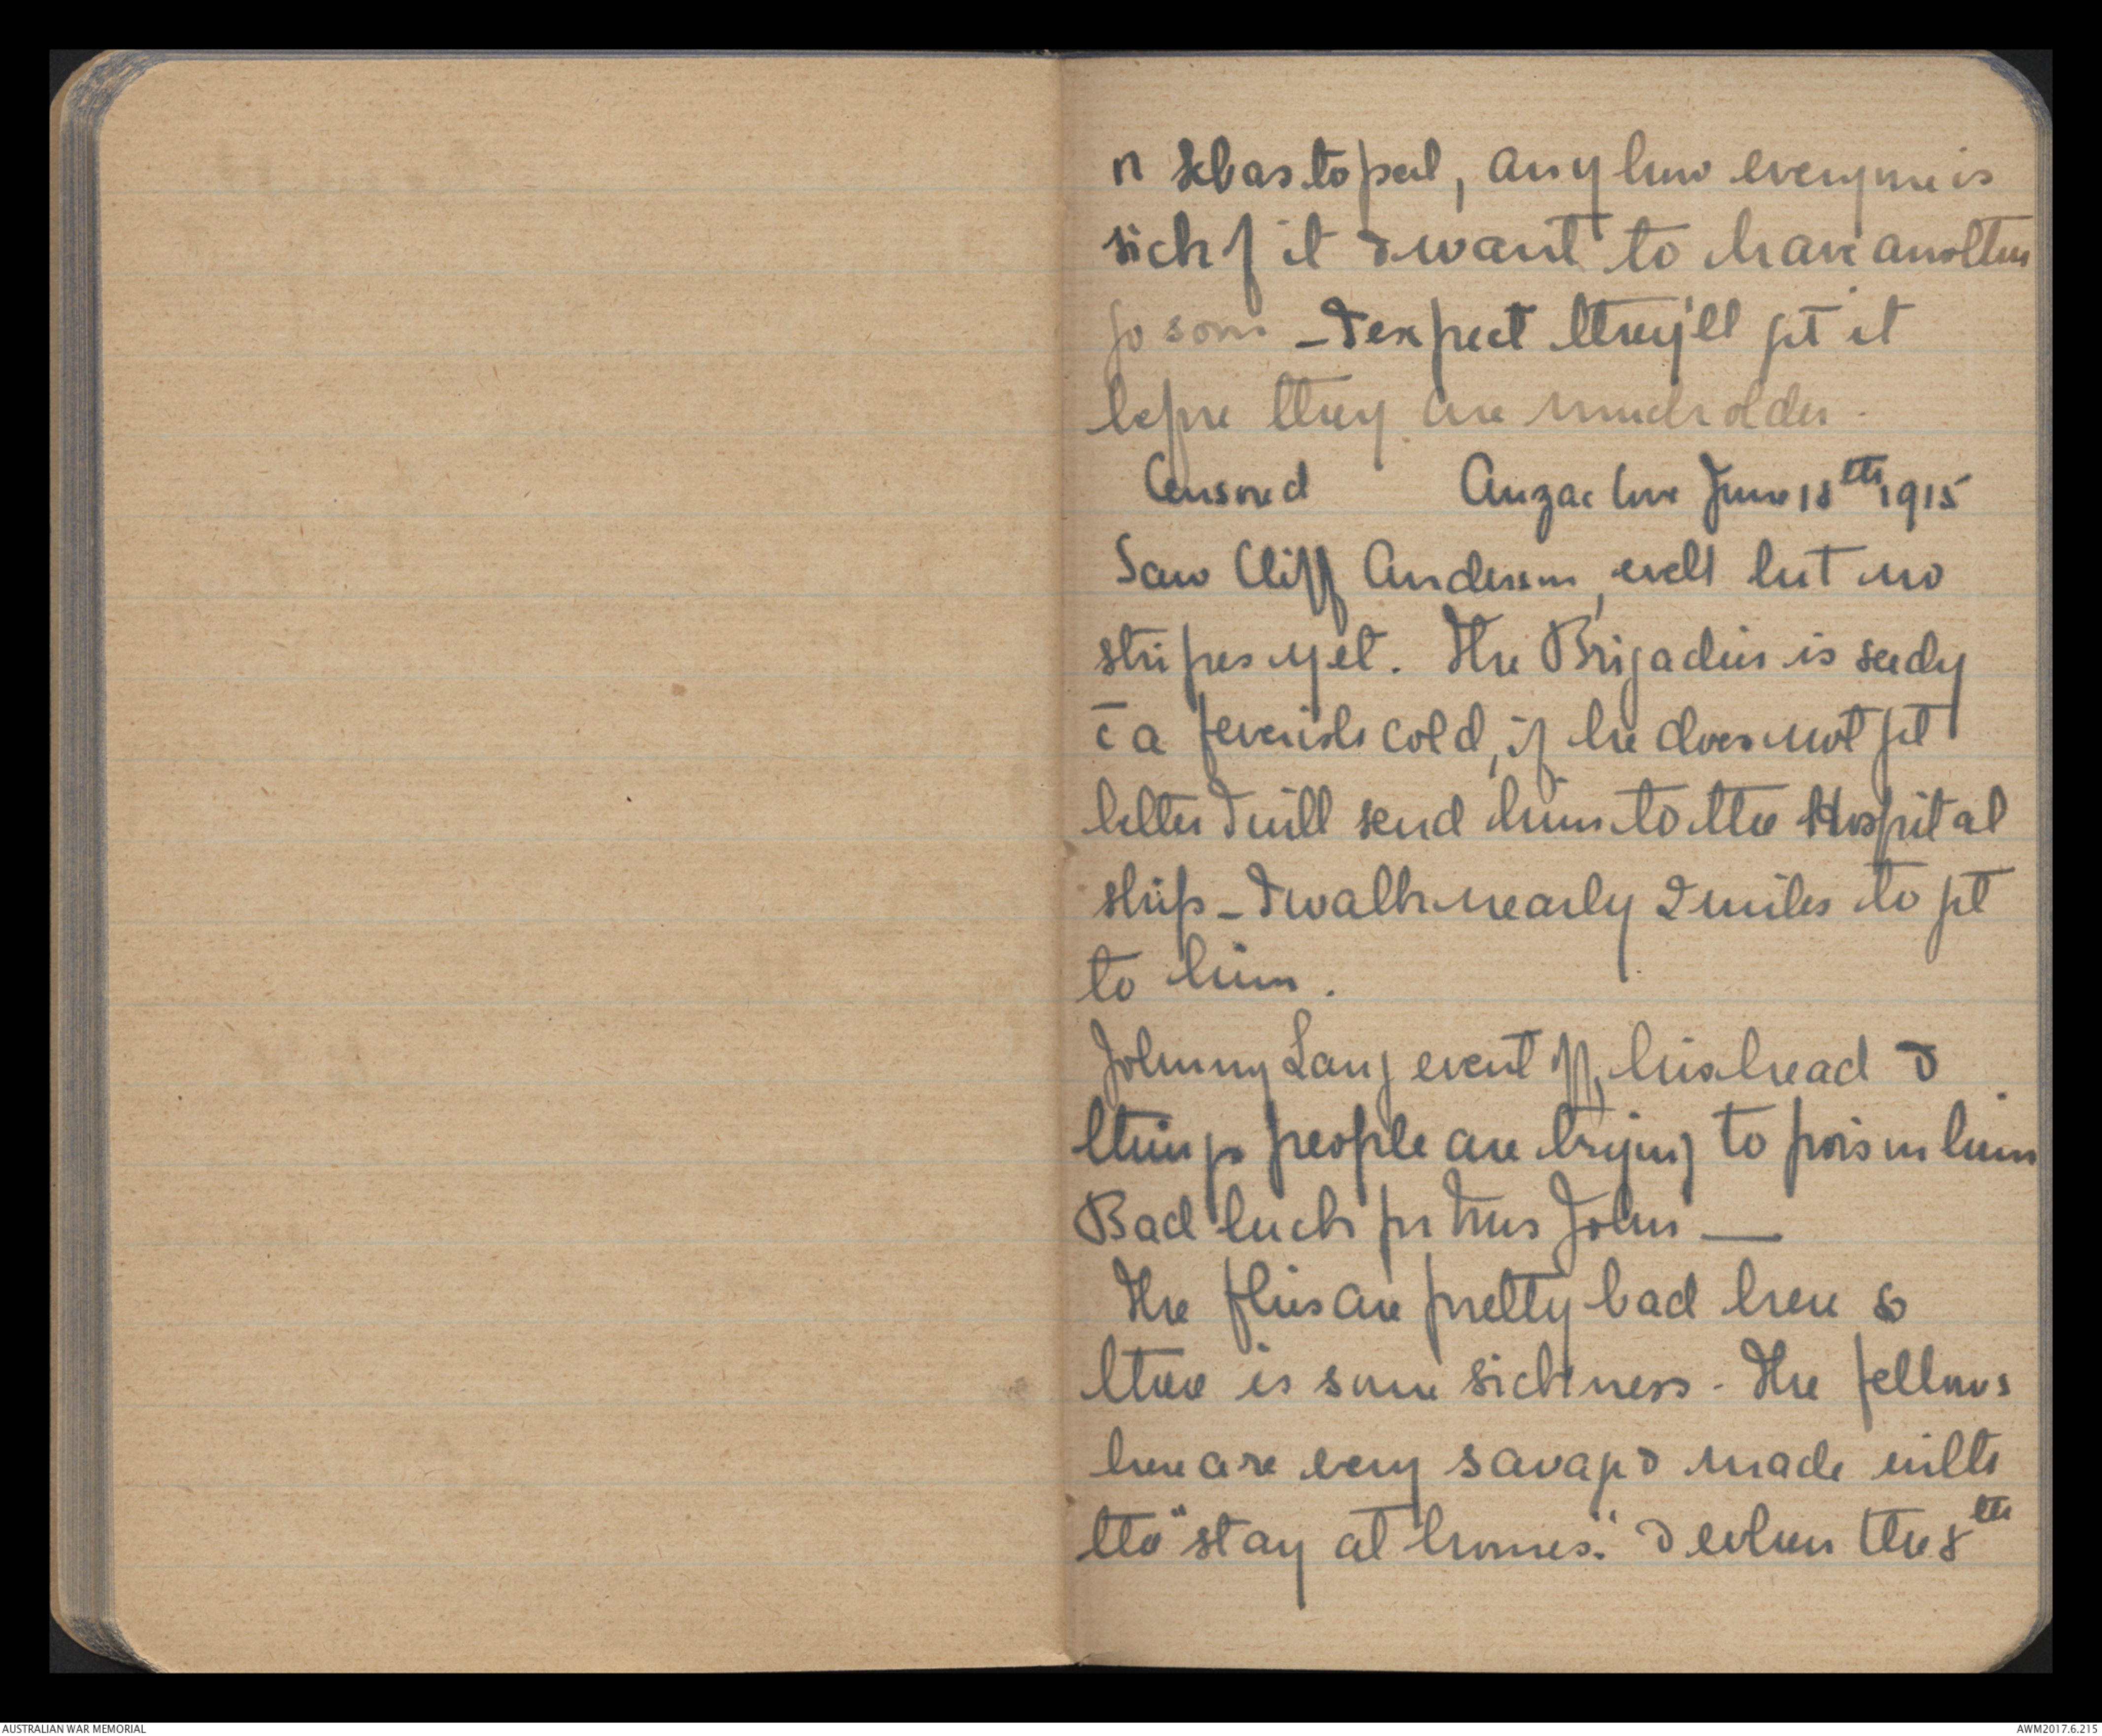 or Sebastopol, anyhow everyone is
sick of it & want to have another
go soon - I expect they'll get it
before they are much older.
Censored Anzac Cove June 18th 1915
Saw Cliff Anderson, well but no
stripes yet. The Brigadier is seedy
c̄ a feverish cold, if he does not get
better I will send him to the Hospital
ship - I walk nearly 2 miles to get
to him.
Johnny Lang went off his head &
things people are trying to poison him
Bad luck for Mrs John —
The flies are pretty bad here so
there is some sickness - The fellows
here are very savage & made with
the "stay at homes." & when the 8th
AUSTRALIAN WAR MEMORIAL
AWM2017.6.215